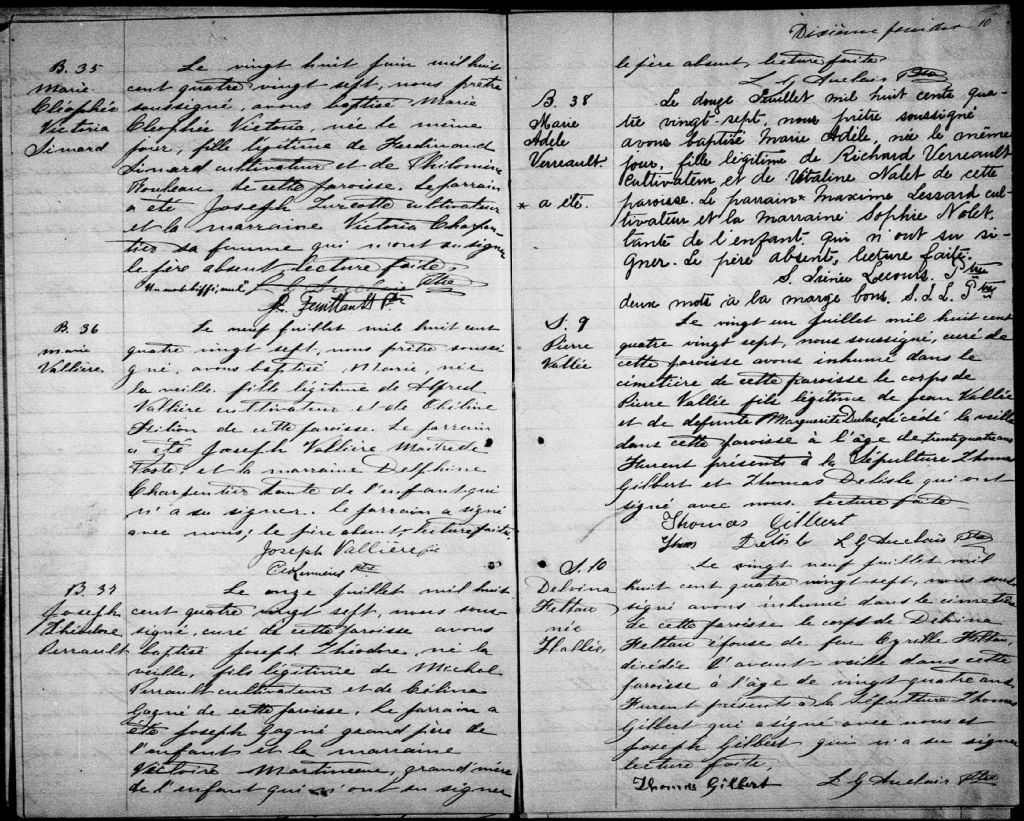 B. 35
Marie
Cléophée
Victoria
Simard
Le vingt huit juin mil huit
cent quatre vingt-sept, nous prêtre
soussigné, avons baptisé Marie
Cléophée Victoria, née le même
jour, fille légitime de Ferdinand
Simard cultivateur et de Philomène
de cette paroisse. Le parrain
a été Joseph Turcotte cultivateur
et la marraine Victoria Charpen-
tier sa femme qui n'ont su signer
le père absent, lecture faite.
Un mot biffé nul
B. 36
Marie
Vallière
Le neuf juillet mil huit cent
quatre vingt-sept, nous prêtre soussi-
gné, avons baptisé Marie, née
la veille fille légitime de Alfred
Vallière cultivateur et de
de cette paroisse. Le parrain
a été Joseph Vallière Maitre de
Poste, et la marraine Delphine
Charpentier tante de l'enfant qui
n'a su signer. Le parrain a signé
avec nous; le père absent, lecture faite.
Joseph Vallière
B. 37
Joseph
Théodore
Perrault
Le onze juillet mil huit
cent quatre vingt sept, nous sous-
signé, curé de cette paroisse avons
baptisé Joseph Théodore, né la
veille, fils légitime de Michel
Perrault cultivateur et de Célina
Gagné de cette paroisse. Le parrain a
été Joseph Gagné grand père de
l'enfant et la marraine
Victoire Martineau, grand'mère
de l'enfant qui n'ont su signer
Dixième
10
le père absent, lecture faite
L G Auclair Ptre
B. 38
Marie
Adèle
Verreault
* a été.
Le douze Juillet mil huit cents qua-
tre vingt-sept, nous prêtre soussigné
avons baptisé Marie Adèle, née le même
jour, fille légitime de Richard Verreault
Cultivateur et de Nolet de cette
paroisse. Le parrain * Maxime Lessard cul-
tivateur et la Marraine Sophie Nolet.
tante de l'enfant qui n'ont su si-
gner. Le père absent, lecture faite.
S. Irénée Lecours. Ptre
deux mots à la marge bons. S. I. L. Ptre
S. 9
Pierre
Vallée
Le vingt un Juillet mil huit cent
quatre vingt sept, nous soussigné, curé de
cette paroisse avons inhumé dans le
cimetière de cette paroisse le corps de
Pierre Vallée fils légitime de Jean Vallée
et de défunte Marguerite Dulac décédé la veille
dans cette paroisse à l'âge de trente quatre ans
Furent présents à la Sépulture Thomas
Gilbert et Thomas Delisle qui ont
signé avec nous. Lecture faite
Thomas Gilbert
L G Auclair Ptre
S. 10
Delvina
née
Le vingt neuf juillet mil
huit cent quatre vingt sept, nous sous
signé avons inhumé dans le cimetière
de cette paroisse le corps de Delvina
épouse de feu Cyrille
décédée l'avant-veille dans cette
paroisse à l'âge de vingt quatre ans
Furent présents à la Sépulture Thomas
Gilbert qui a signé avec nous et
Joseph Gilbert qui n'a su signer
lecture faite.
Thomas Gilbert L G Auclair Ptre